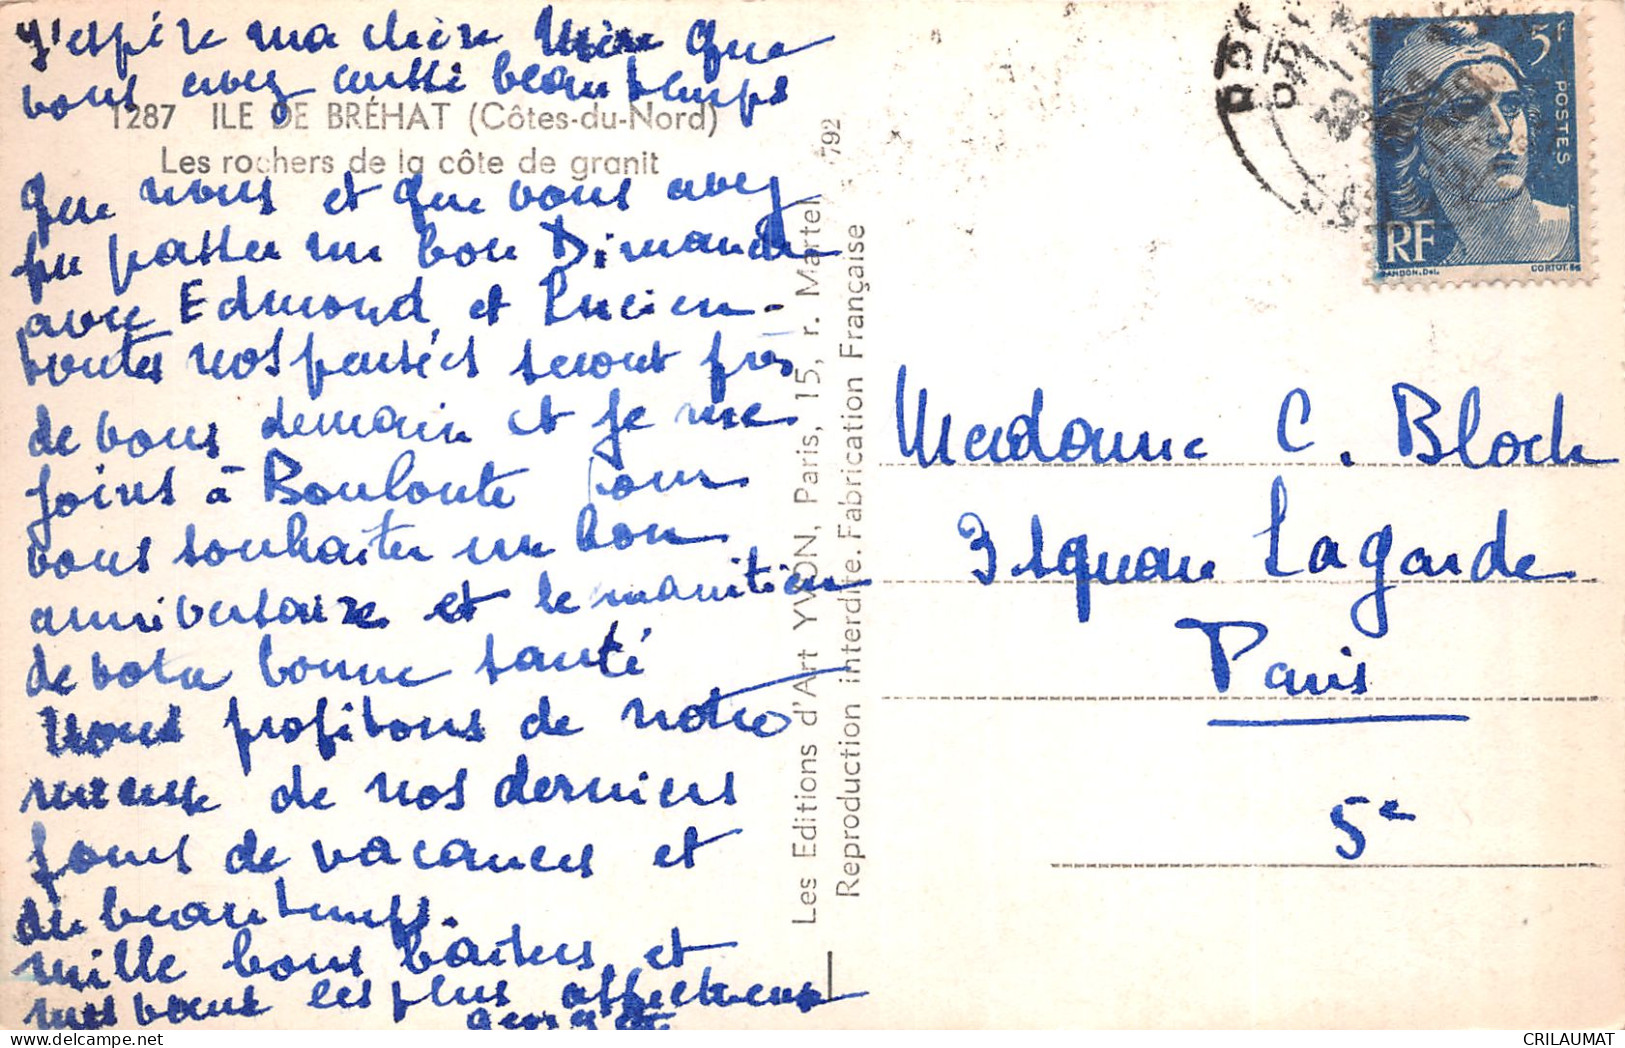 J'espère ma chère Mère que
vous avez aussi beau temps
1287 ILE DE BRÉHAT (Côtes-du-Nord)
Les rochers de la côte de granit
que nous et que vous avez
pu passer un bon Dimanche
avec Edmond et Lucien.
toutes nos pensées seront près
de vous demain et je me
joins à pour
vous souhaiter un bon
anniversaire et le maintien
de votre bonne santé
Nous profitons de notre
mieux de nos derniers
jours de vacances et
du beau temps.
mille bons baisers et
les plus affectueux
Georgette
Les Editions d'Art YVON, Paris, 15, r. Martel
Reproduction interdite. Fabrication Française
792
5F
POSTES
RF
GANDON. Del.
CORTOT. SC
Madame C. Bloch
3 square Lagarde
Paris
5e
CRILAUMAT